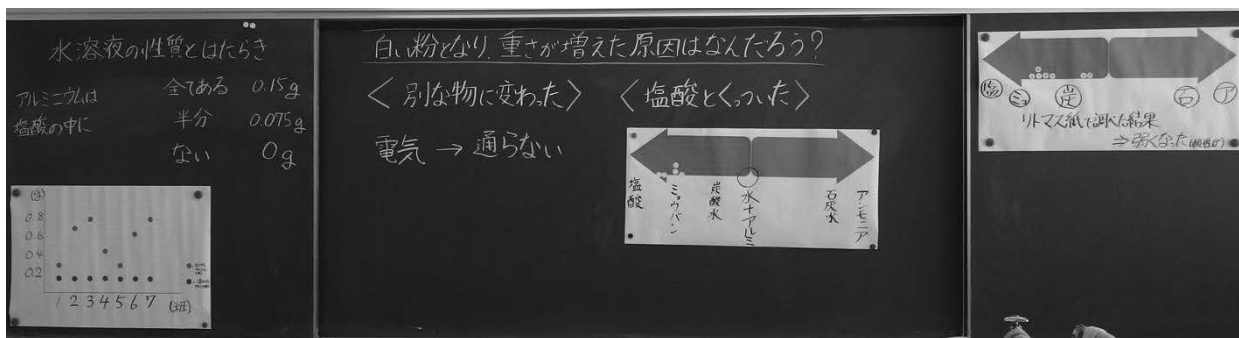 水溶液の性質とはたらき
アルミニウムは
塩酸の中に
全てある 0.15g
半分 0.075g
ない 0g
(g)
0.8
0.6
0.4
0.2
1 2 3 4 5 6 7 (班)
白い粉となり、重さが増えた原因はなんだろう?
〈別な物に変わった〉 〈塩酸とくっついた〉
電気 → 通らない
塩酸
ミョウバン
炭酸水
水+アルミ
石灰水
アンモニア
塩 ミョ 炭 石 ア
リトマス紙で調べた結果
⇒ 弱くなった